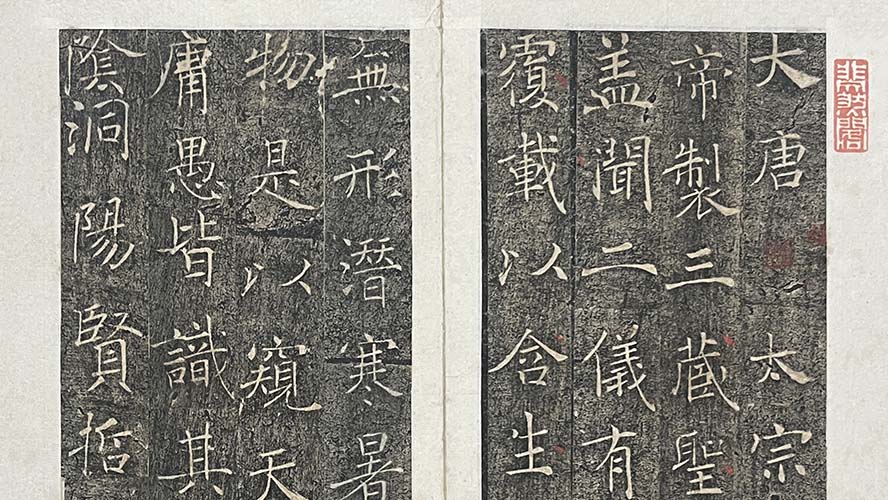 大唐太宗
帝製三藏聖
盖聞二儀有
覆載以含生
無形潛寒暑
物是以窺天
庸愚皆識其
陰洞陽賢哲